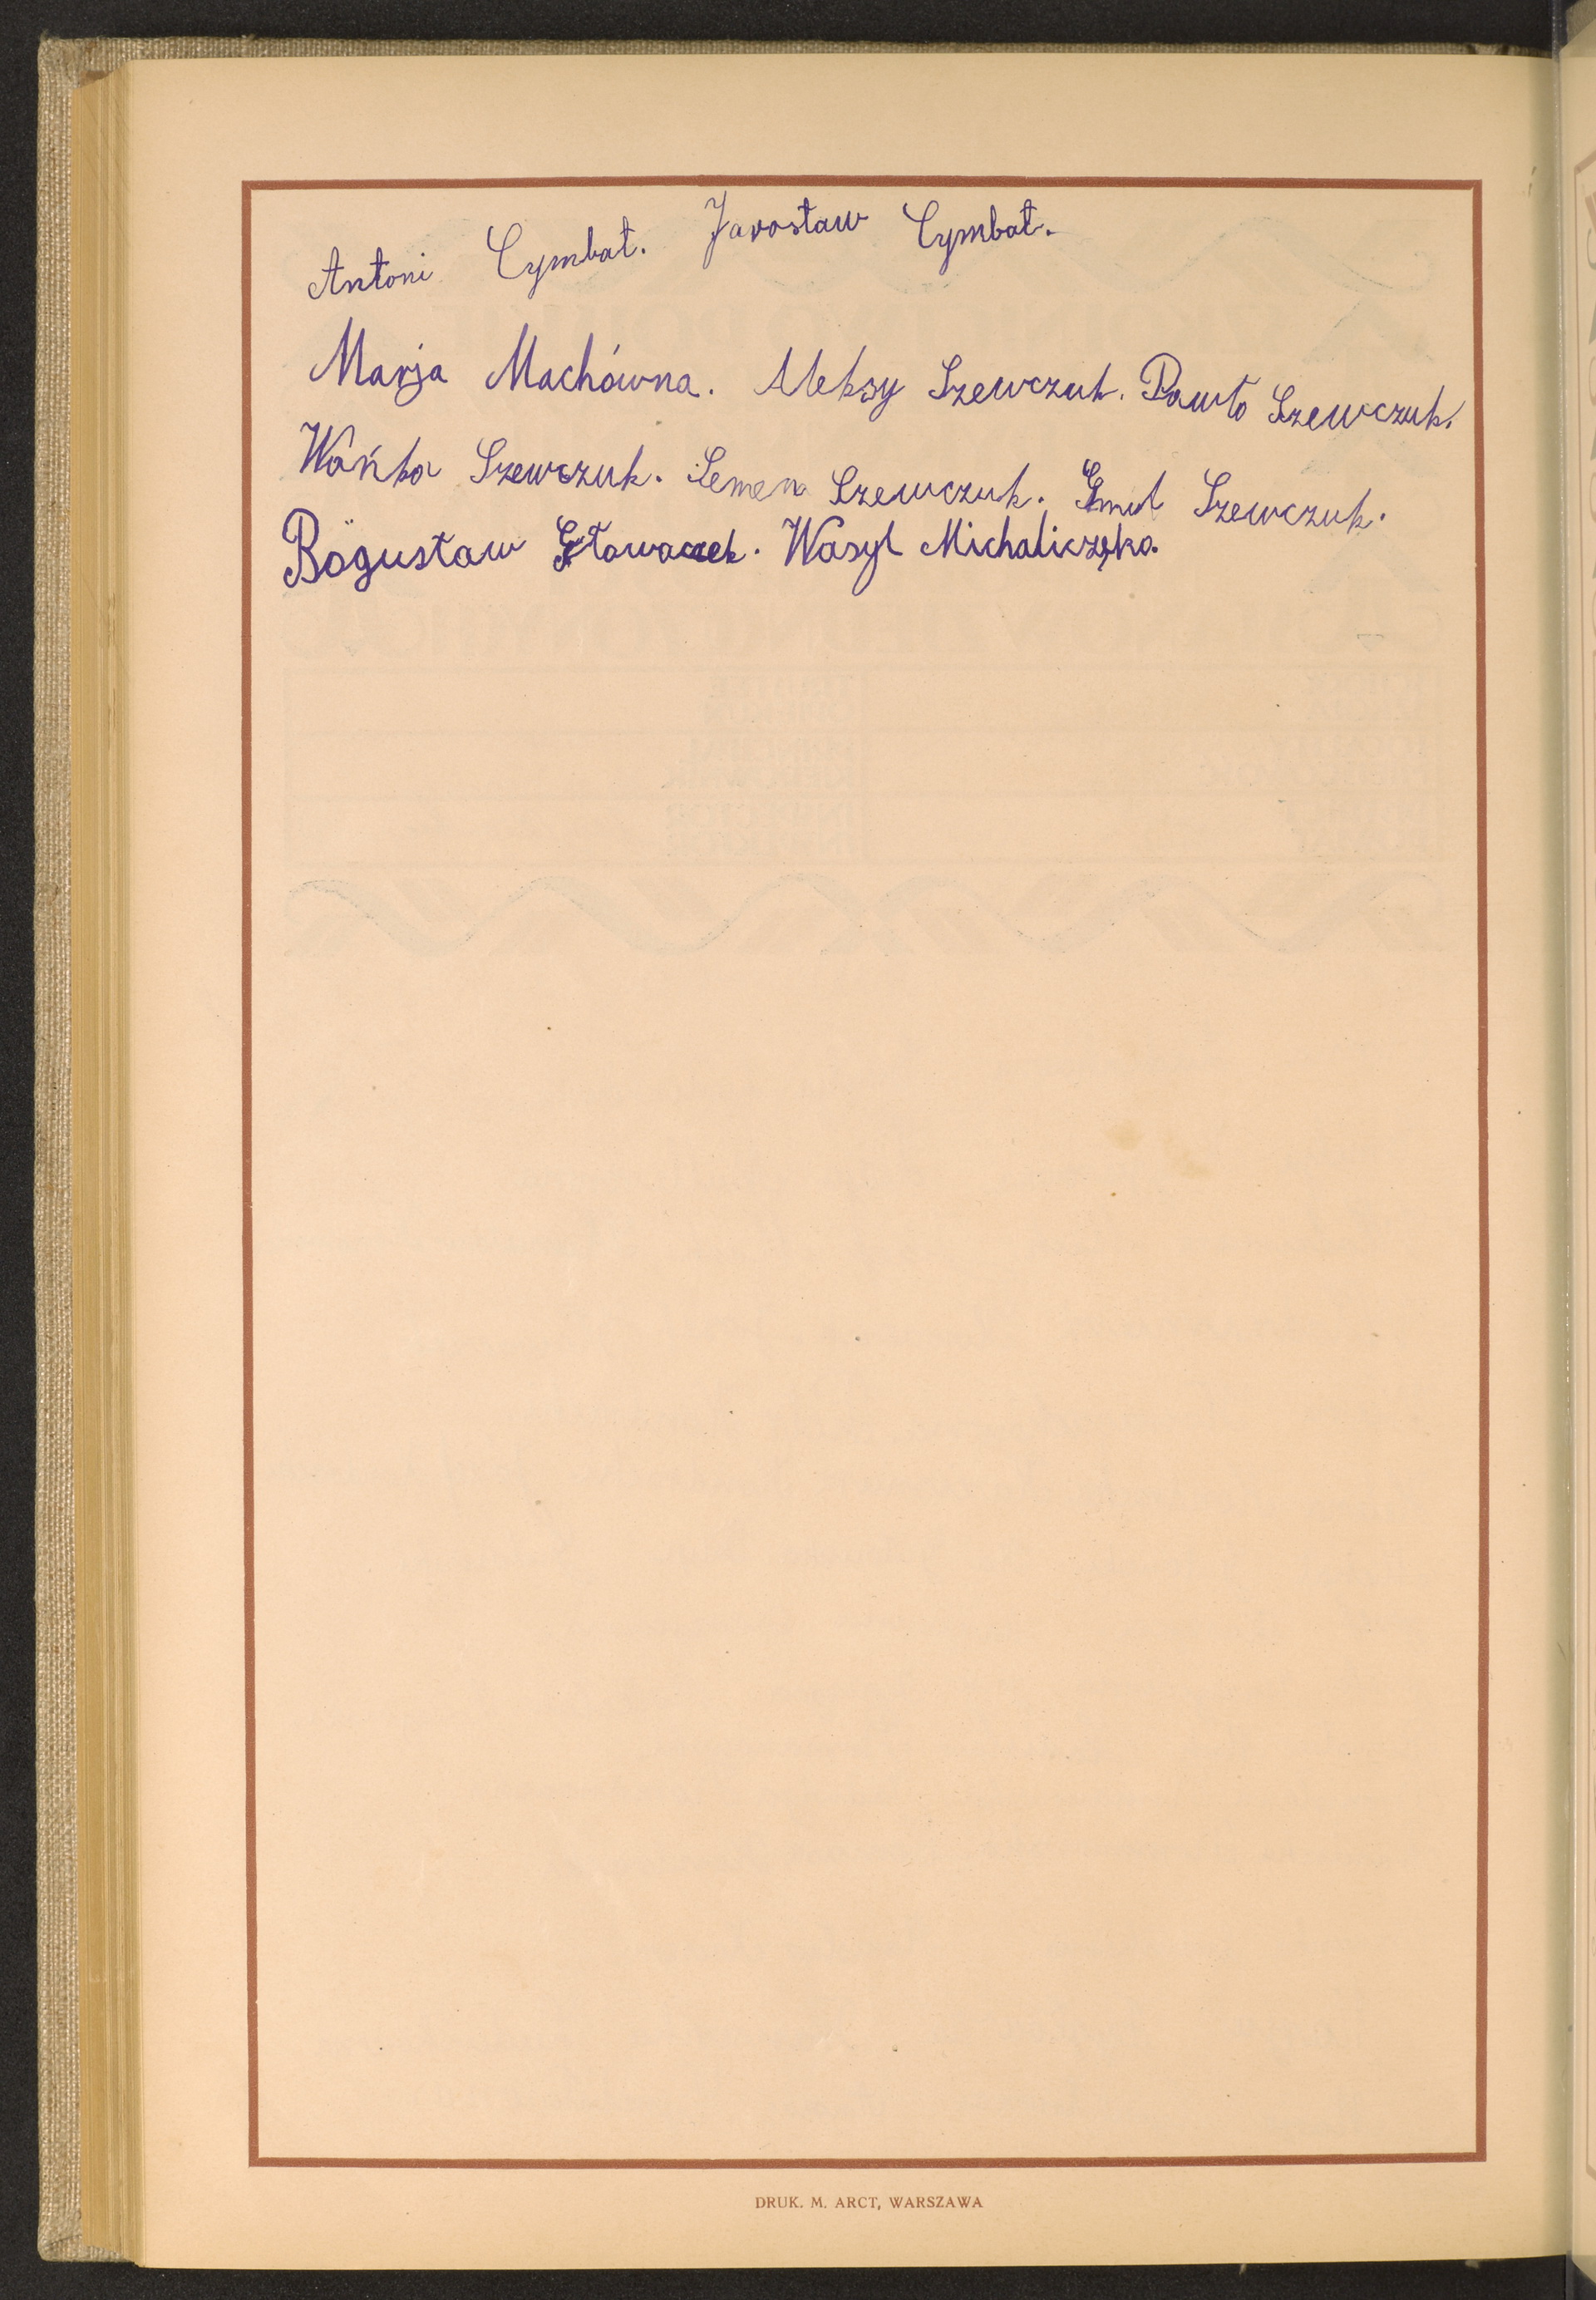 Antoni Cymbał. Jarosław Cymbał.
Marja Machówna. Aleksy Szewczuk. Pawło Szewczuk.
Wańka Szewczuk. Semen Szewczuk. Emil Szewczuk.
Bogusław Głowacek. Wasyl Michaliczko.
DRUK. M. ARCT, WARSZAWA